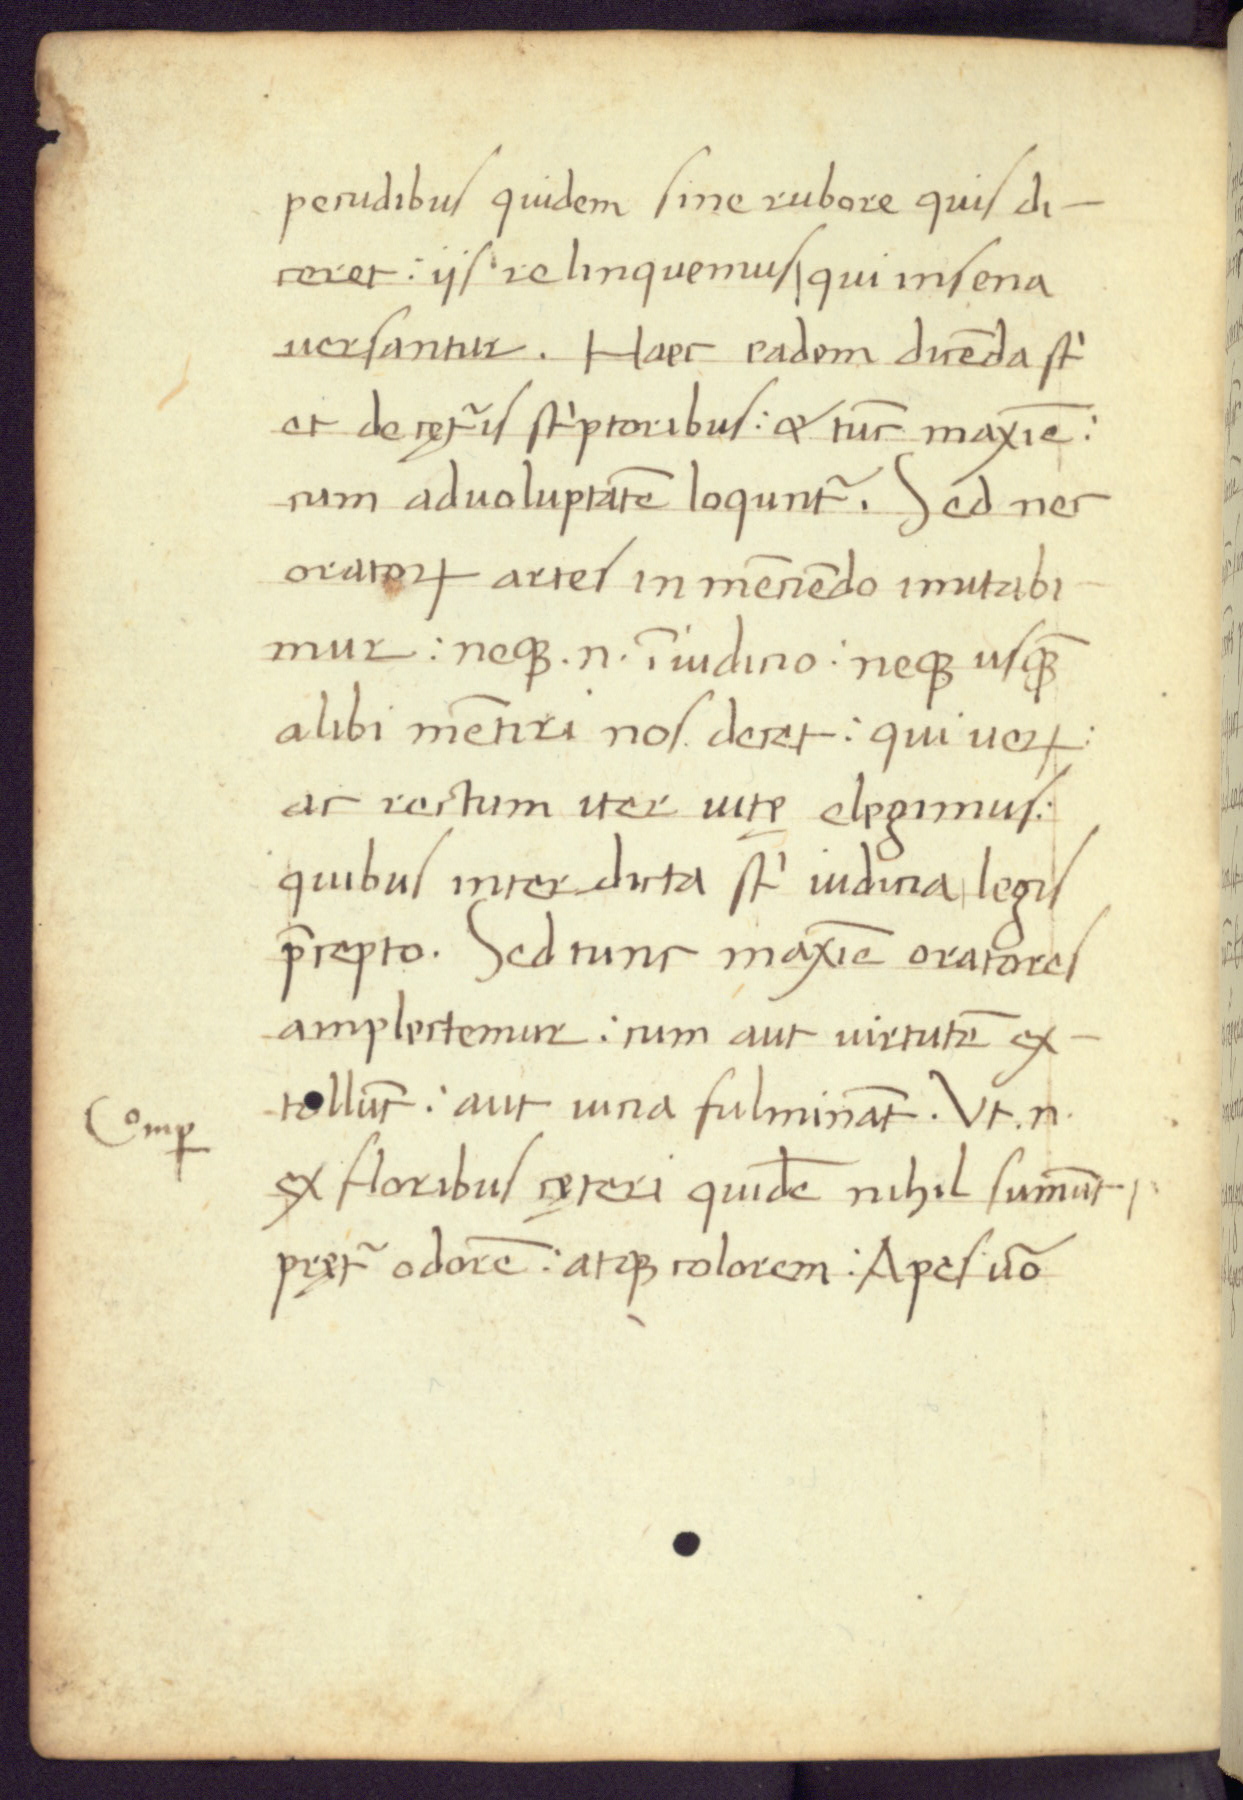 pecudibus quidem sine rubore quis di-
ceret: ijs relinquemus, qui in scena
uersantur. Haec eadem dicēda st̀
et de cęt̃is st̀ptoribus: & tūc maxīe:
cum ad uoluptatē loqunt̃. Sed nec
oratoꝝ artes in mēciēdo imitabi-
mur: neqȝ .n. ī iudicio: neqȝ usqȝ̄
alibi mētiri nos decet: qui ueꝝ:
ac rectum iter uitę elegimus:
quibus interdicta st̀ iudicia legis
p̄cepto. Sed tunc maxīe oratores
amplectemur: cum aut uirtutē ex-
tollūt: aut uicia fulmināt. Vt .n.
Comꝑ
ex floribus cęteri quidē nihil sumūt
pręt̃ odorē: atqȝ colorem: Apes ūo